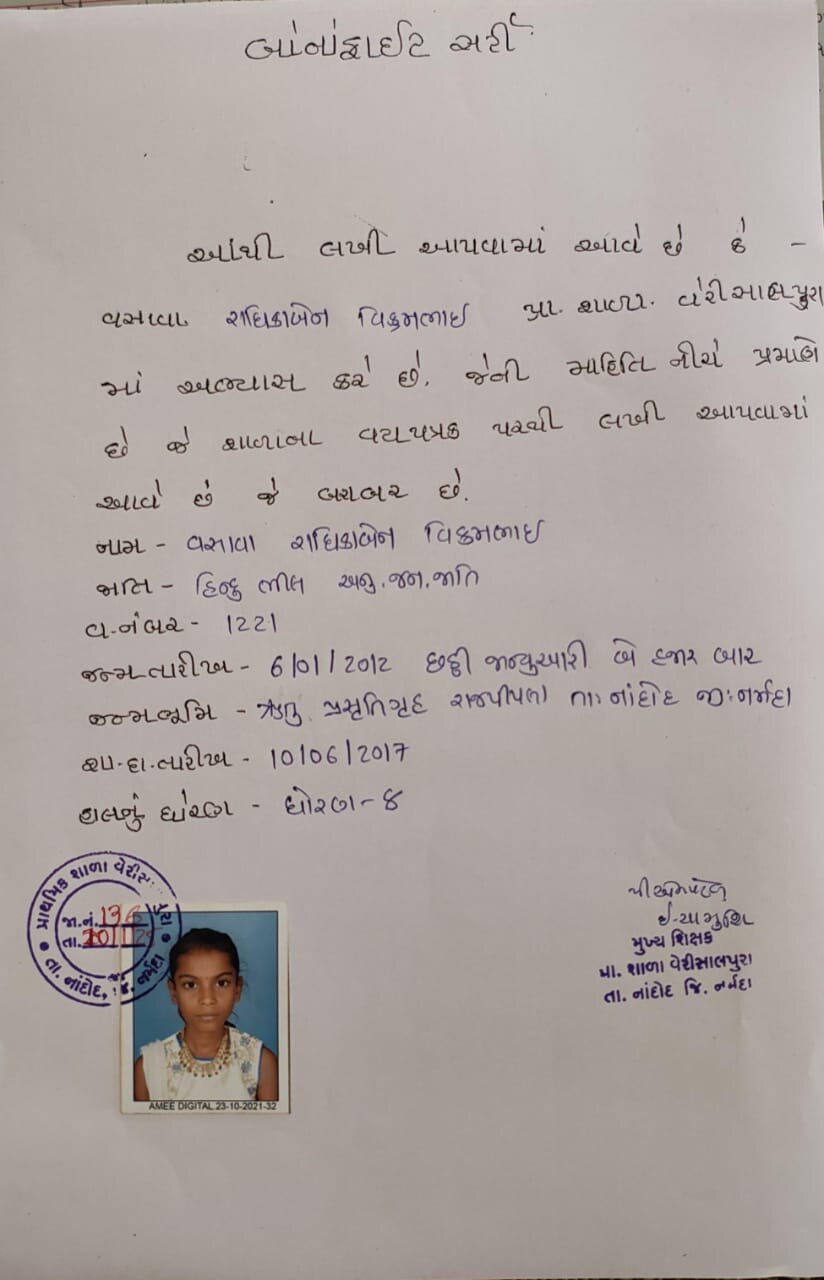 બોનાફાઈટ સર્ટી
આથી લખી આપવામાં આવે છે કે -
વસાવા રાધિકાબેન વિક્રમભાઈ પ્રા. શાળા. વેરીસાલપુરા
માં અભ્યાસ કરે છે. જેની માહિતિ નીચે પ્રમાણે
છે જે શાળાના વયપત્રક પરથી લખી આપવામાં
આવે છે જે બરાબર છે.
નામ - વસાવા રાધિકાબેન વિક્રમભાઈ
જાતિ - હિન્દુ ભીલ અનુ.જન.જાતિ
વ.નંબર - 1221
જન્મતારીખ - 6/01/2012 છઠ્ઠી જાન્યુઆરી બે હજાર બાર
જન્મભૂમિ - ઋતુ પ્રસૃતિગૃહ રાજપીપલા તા:નાંદોદ જી:નર્મદા
શા.દા.તારીખ - 10/06/2017
હાલનું ધોરણ - ધોરણ-૪
પ્રાથમિક શાળા વેરીસાલપુરા
જા.નં.
તા.
તા. નાંદોદ, જી. નર્મદા
AMEE DIGITAL 23-10-2021-32
મુખ્ય શિક્ષક
પ્રા. શાળા વેરીસાલપુરા
તા. નાંદોદ જિ. નર્મદા